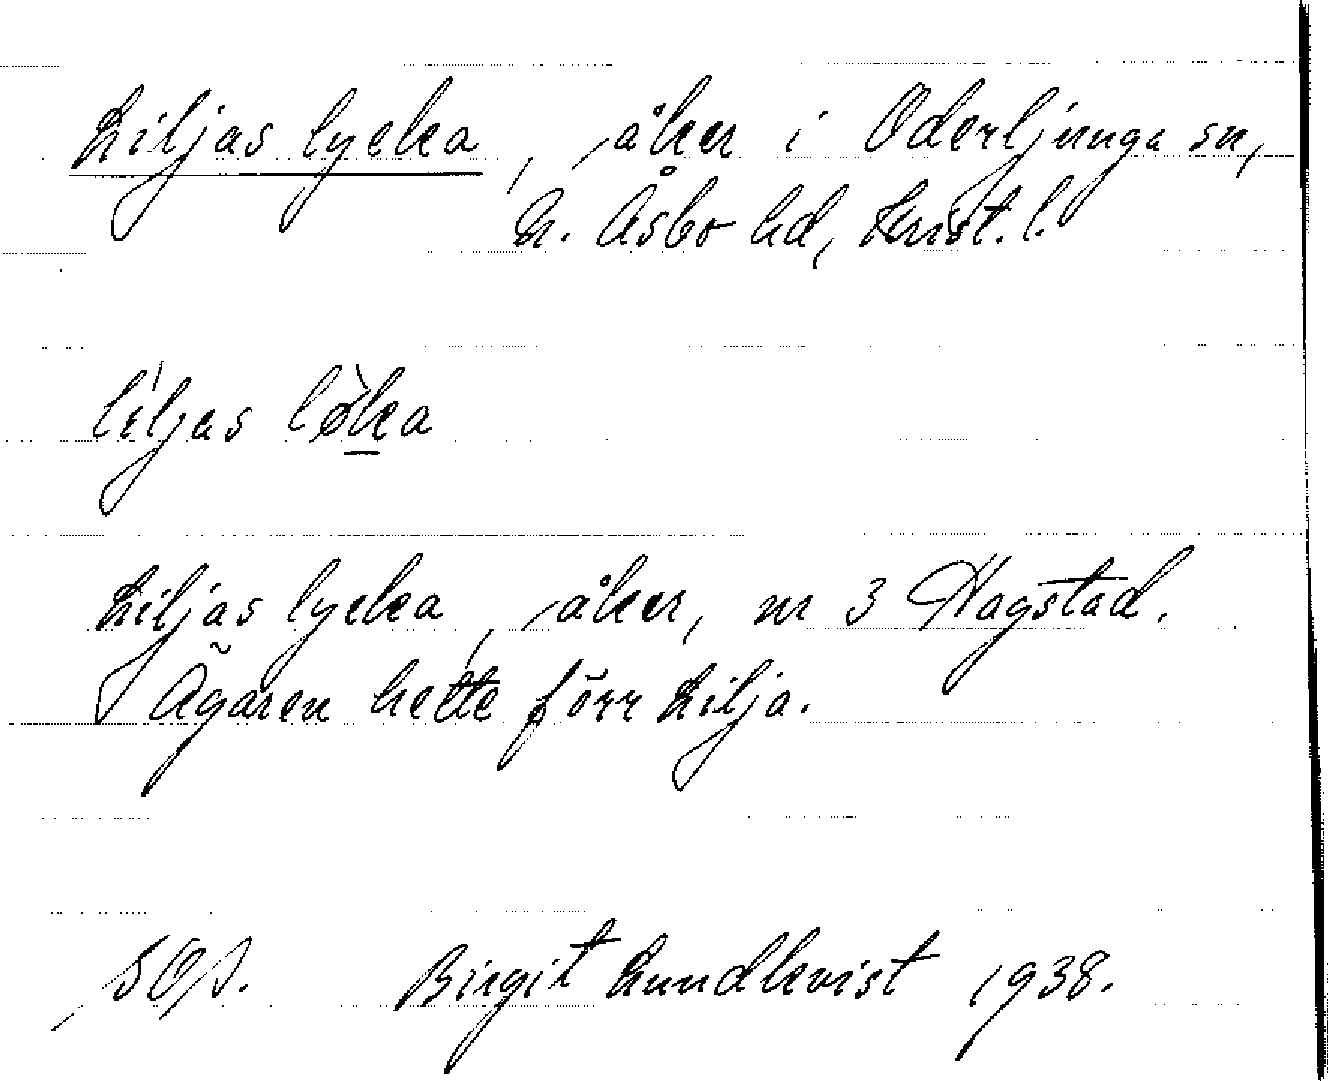 Liljas lycka, åker i Oderljunga sn,
N. Åsbo hd, Krist. l.
lìljas lø̀ka
Liljas lycka, åker, nr 3 Hagstad.
Ägaren hette förr Lilja.
SOA. Birgit Lundkvist 1938.